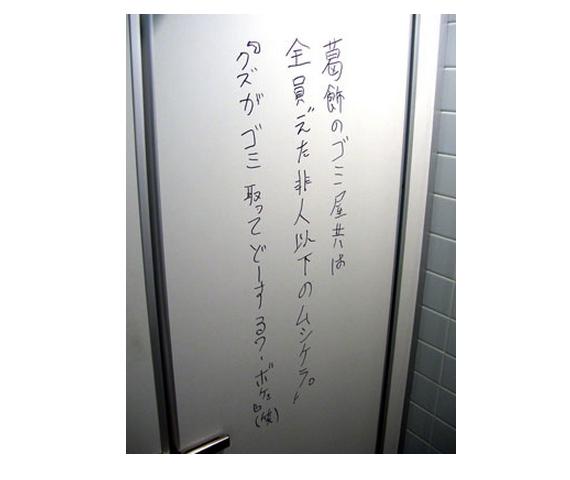 葛飾のゴミ屋共は
全員えた非人以下のムシケラ。
クズがゴミ取ってどーするワ・ボケ (笑)